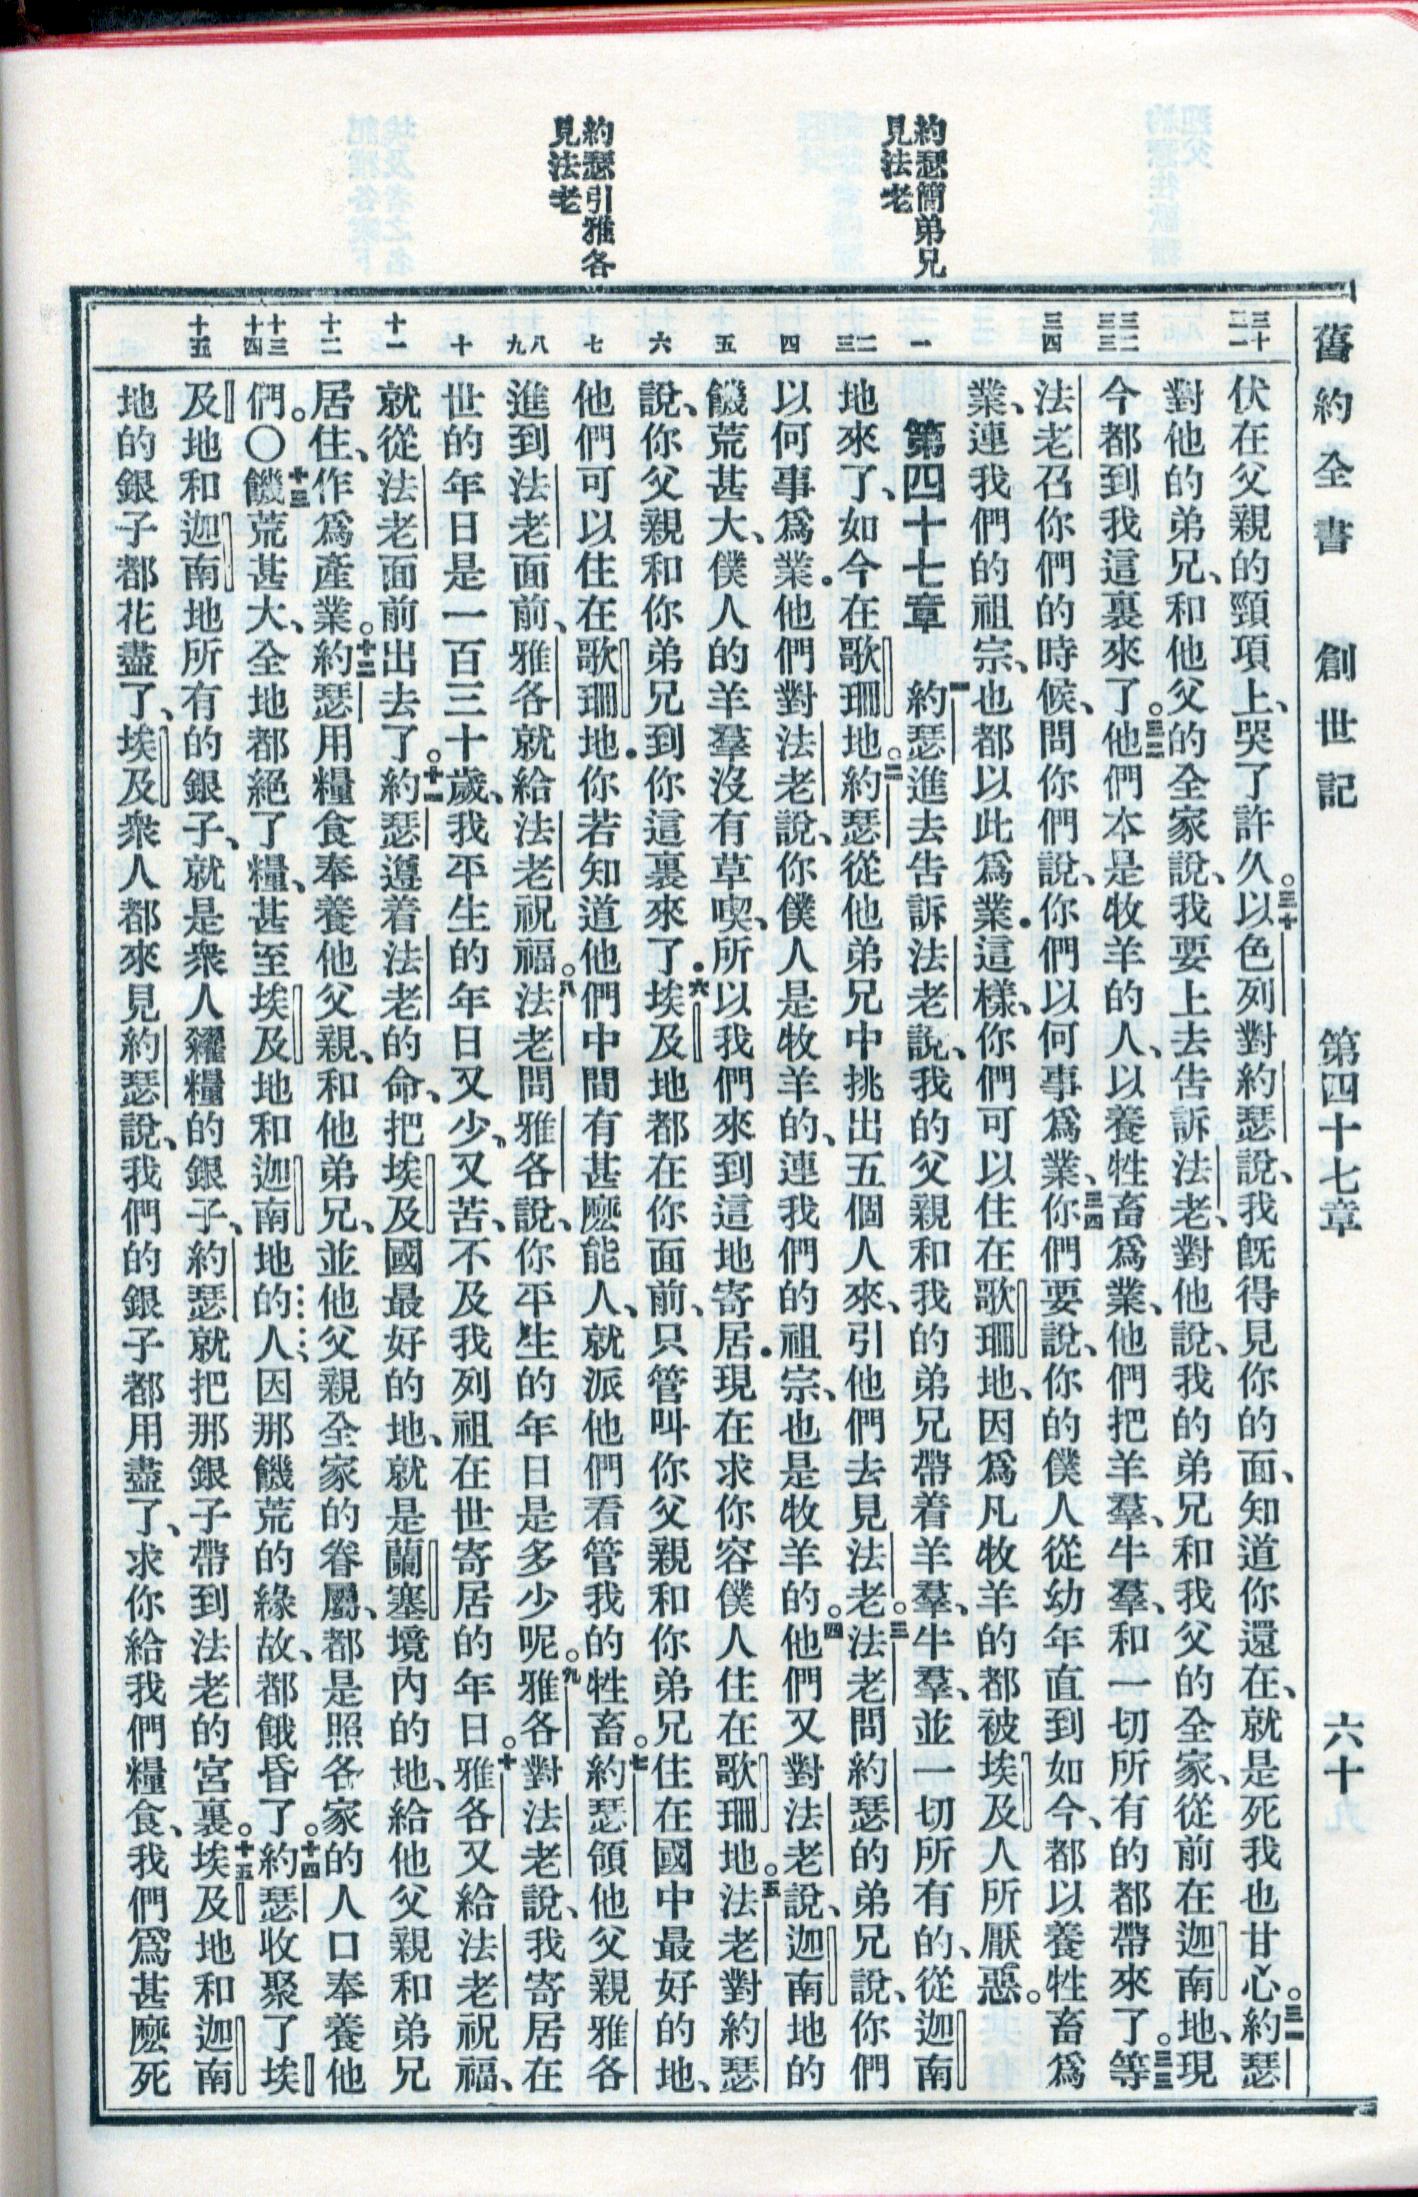 約瑟簡弟兄
見法老
約瑟引雅各
見法老
舊約全書 創世記 第四十七章 六十
三十
三一
三二
三三
三四
一
二
三
四
五
六
七
八
九
十
十一
十二
十三
十四
十五
伏在父親的頸項上、哭了許久。三十以色列對約瑟說、我旣得見你的面、知道你還在、就是死我也甘心。三一約瑟
對他的弟兄、和他父的全家說、我要上去告訴法老、對他說、我的弟兄和我父的全家、從前在迦南地、現
今都到我這裏來了。三二他們本是牧羊的人、以養牲畜爲業、他們把羊羣、牛羣、和一切所有的都帶來了。三三等
法老召你們的時候、問你們說、你們以何事爲業、三四你們要說、你的僕人從幼年直到如今、都以養牲畜爲
業、連我們的祖宗、也都以此爲業．這樣、你們可以住在歌珊地、因爲凡牧羊的都被埃及人所厭惡。
第四十七章 一約瑟進去告訴法老說、我的父親和我的弟兄帶着羊羣、牛羣、並一切所有的、從迦南
地來了、如今在歌珊地。二約瑟從他弟兄中挑出五個人來、引他們去見法老。三法老問約瑟的弟兄說、你們
以何事爲業．他們對法老說、你僕人是牧羊的、連我們的祖宗、也是牧羊的。四他們又對法老說、迦南地的
饑荒甚大、僕人的羊羣沒有草喫、所以我們來到這地寄居．現在求你容僕人住在歌珊地。五法老對約瑟
說、你父親和你弟兄到你這裏來了．六埃及地都在你面前、只管叫你父親和你弟兄住在國中最好的地、
他們可以住在歌珊地．你若知道他們中間有甚麼能人、就派他們看管我的牲畜。七約瑟領他父親雅各
進到法老面前、雅各就給法老祝福。八法老問雅各說、你平生的年日是多少呢。九雅各對法老說、我寄居在
世的年日是一百三十歲、我平生的年日又少、又苦、不及我列祖在世寄居的年日。十雅各又給法老祝福、
就從法老面前出去了。十一約瑟遵着法老的命、把埃及國最好的地、就是蘭塞境內的地、給他父親和弟兄
居住、作爲產業。十二約瑟用糧食奉養他父親、和他弟兄、並他父親全家的眷屬、都是照各家的人口奉養他
們。〇十三饑荒甚大、全地都絕了糧、甚至埃及地和迦南地的人因那饑荒的緣故、都餓昏了。十四約瑟收聚了埃
及地和迦南地所有的銀子、就是衆人糴糧的銀子、約瑟就把那銀子帶到法老的宮裏。十五埃及地和迦南
地的銀子都花盡了、埃及衆人都來見約瑟說、我們的銀子都用盡了、求你給我們糧食、我們爲甚麼死